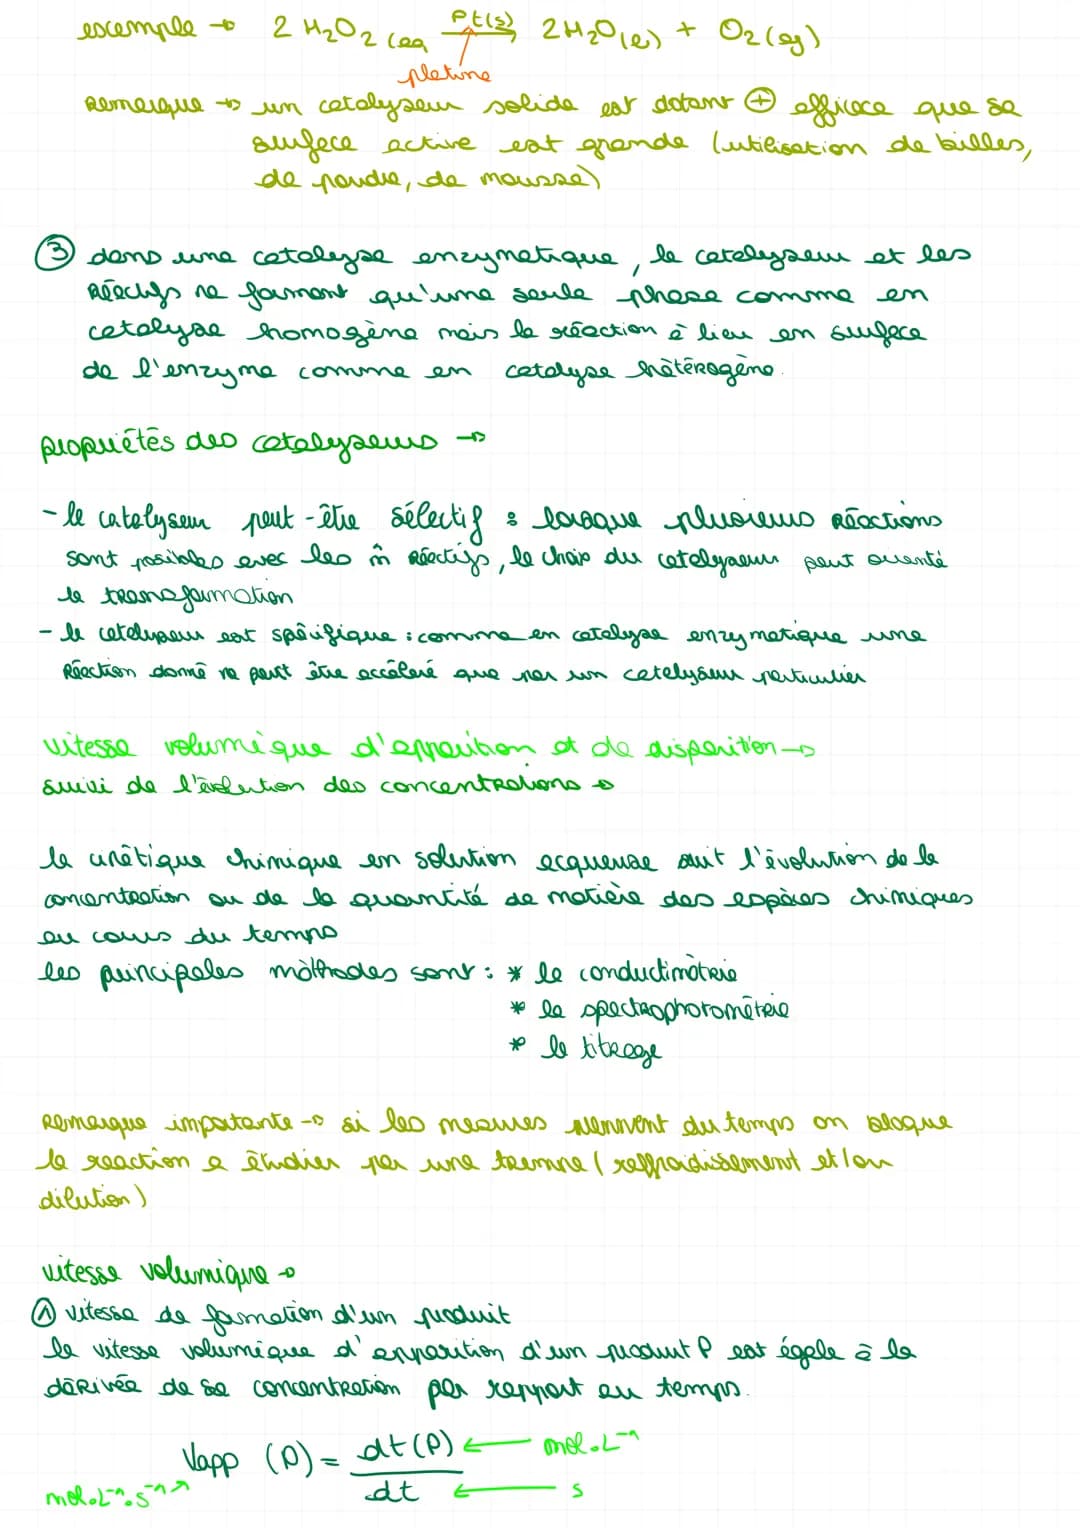 exemple → 2 H₂O₂ (aq Pt(s) → 2H₂O(l) + O₂(g)
platine
Remarque → un catalyseur solide est dotant ⊕ efficace que sa
surface active est grande (utilisation de billes,
de poudre, de mousse)
③ dans une catalyse enzymatique, le catalyseur et les
Réactifs ne forment qu'une seule phase comme en
catalyse homogène mais la réaction à lieu en surface
de l'enzyme comme en catalyse hétérogène.
propriétés des catalyseurs →
- le catalyseur peut-être sélectif : lorsque plusieurs Réactions
sont possibles avec les m̂ Réactifs, le choix du catalyseur peut orienté
la transformation
- le catalyseur est spécifique : comme en catalyse enzymatique une
Réaction donné ne peut être accéléré que par un catalyseur particulier
vitesse volumique d'apparition et de disparition →
suivi de l'évolution des concentrations →
la cinétique chimique en solution acqueuse suit l'évolution de la
concentration ou de la quantité de matière des espèces chimiques
au cours du temps
les principales méthodes sont : * la conductimétrie
* la spectrophotométrie
* le titrage
Remarque importante → si les mesures prennent du temps on bloque
la reaction a étudier par une trempe (reffroidissement et/ou
dilution)
vitesse volumique →
① vitesse de formation d'un produit
la vitesse volumique d'apparition d'un produit P est égale à la
dérivée de sa concentration par rapport au temps.
Vapp (P) = dt(P) ← mol.L⁻¹
mol.L⁻¹.s⁻¹ ↗ dt ← s